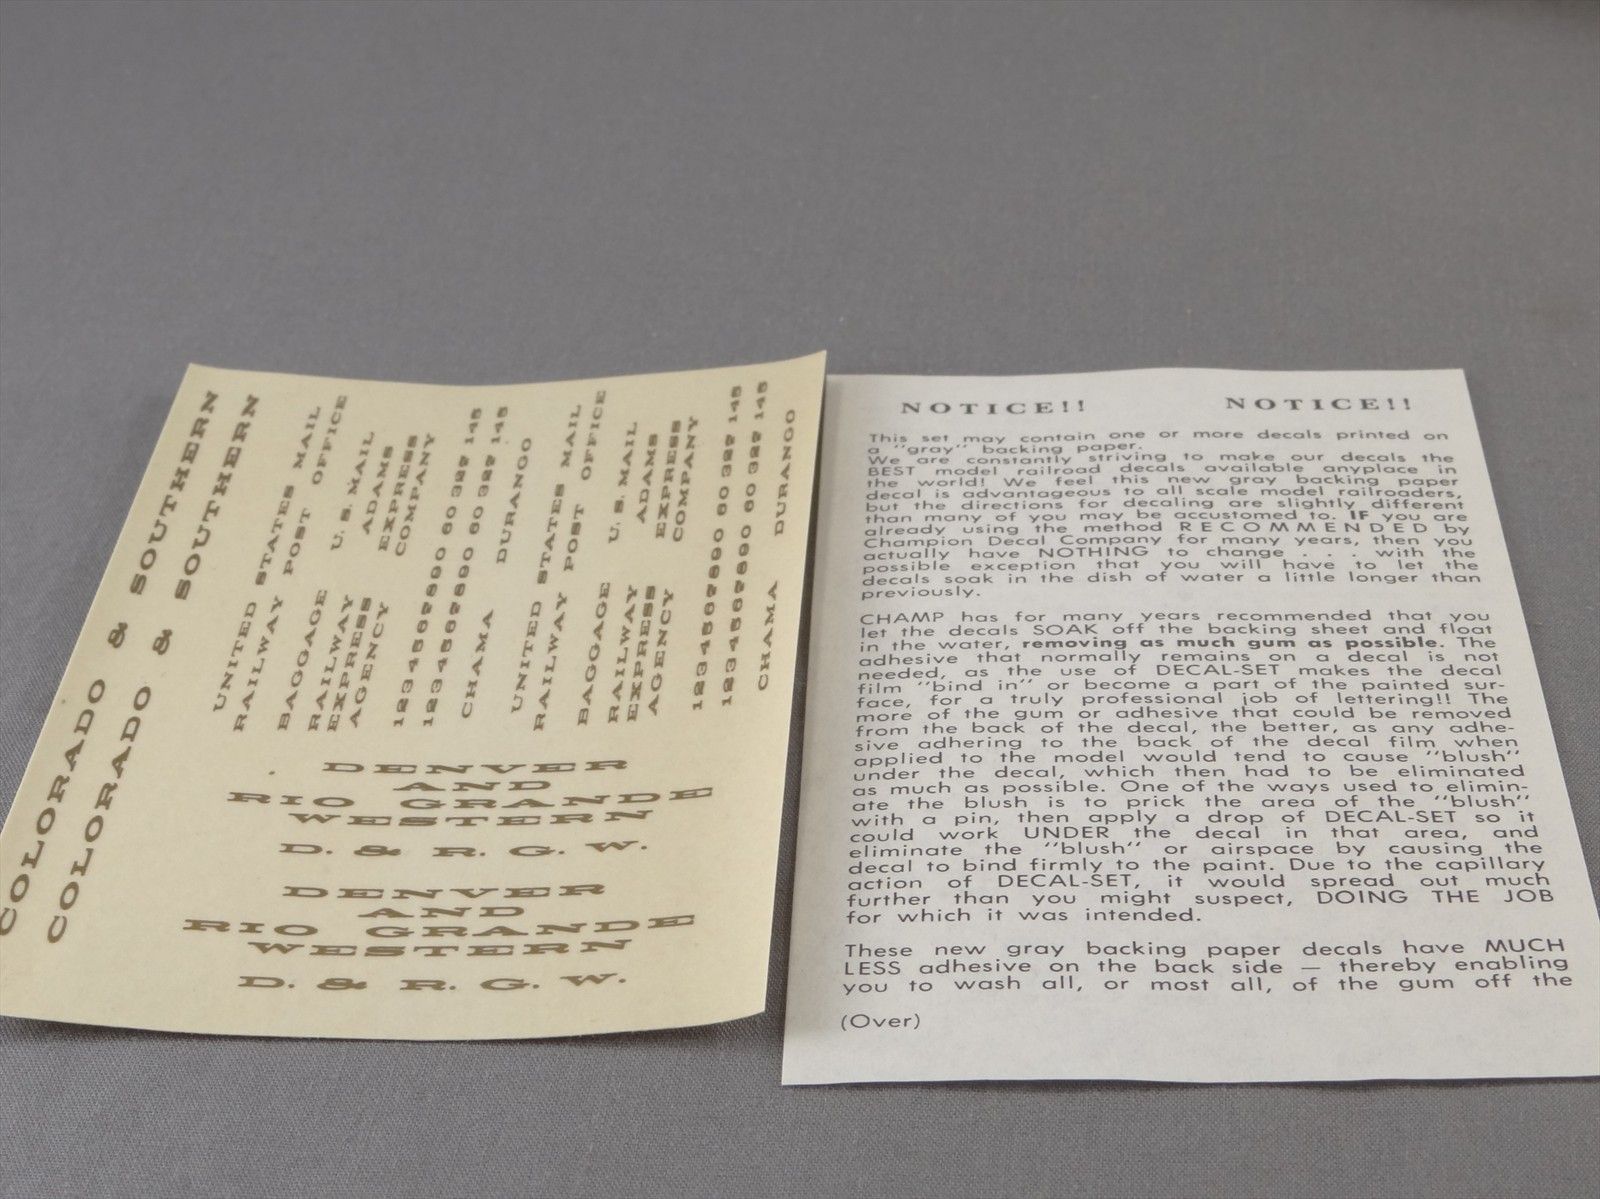 COLORADO & SOUTHERN
COLORADO & SOUTHERN
UNITED STATES MAIL
RAILWAY POST OFFICE
BAGGAGE U. S. MAIL
RAILWAY ADAMS
EXPRESS EXPRESS
AGENCY COMPANY
1234567890 60 327 145
1234567890 60 327 145
CHAMA DURANGO
UNITED STATES MAIL
RAILWAY POST OFFICE
BAGGAGE U. S. MAIL
RAILWAY ADAMS
EXPRESS EXPRESS
AGENCY COMPANY
1234567890 60 327 145
1234567890 60 327 145
CHAMA DURANGO
DENVER
AND
RIO GRANDE
WESTERN
D. & R. G. W.
DENVER
AND
RIO GRANDE
WESTERN
D. & R. G. W.
NOTICE!! NOTICE!!
This set may contain one or more decals printed on
a "gray" backing paper.
We are constantly striving to make our decals the
BEST model railroad decals available anyplace in
the world! We feel this new gray backing paper
decal is advantageous to all scale model railroaders,
but the directions for decaling are slightly different
than many of you may be accustomed to. IF you are
already using the method RECOMMENDED by
Champion Decal Company for many years, then you
actually have NOTHING to change . . . with the
possible exception that you will have to let the
decals soak in the dish of water a little longer than
previously.
CHAMP has for many years recommended that you
let the decals SOAK off the backing sheet and float
in the water, removing as much gum as possible. The
adhesive that normally remains on a decal is not
needed, as the use of DECAL-SET makes the decal
film "bind in" or become a part of the painted sur-
face, for a truly professional job of lettering!! The
more of the gum or adhesive that could be removed
from the back of the decal, the better, as any adhe-
sive adhering to the back of the decal film when
applied to the model would tend to cause "blush"
under the decal, which then had to be eliminated
as much as possible. One of the ways used to elimin-
ate the blush is to prick the area of the "blush"
with a pin, then apply a drop of DECAL-SET so it
could work UNDER the decal in that area, and
eliminate the "blush" or airspace by causing the
decal to bind firmly to the paint. Due to the capillary
action of DECAL-SET, it would spread out much
further than you might suspect, DOING THE JOB
for which it was intended.
These new gray backing paper decals have MUCH
LESS adhesive on the back side — thereby enabling
you to wash all, or most all, of the gum off the
(Over)